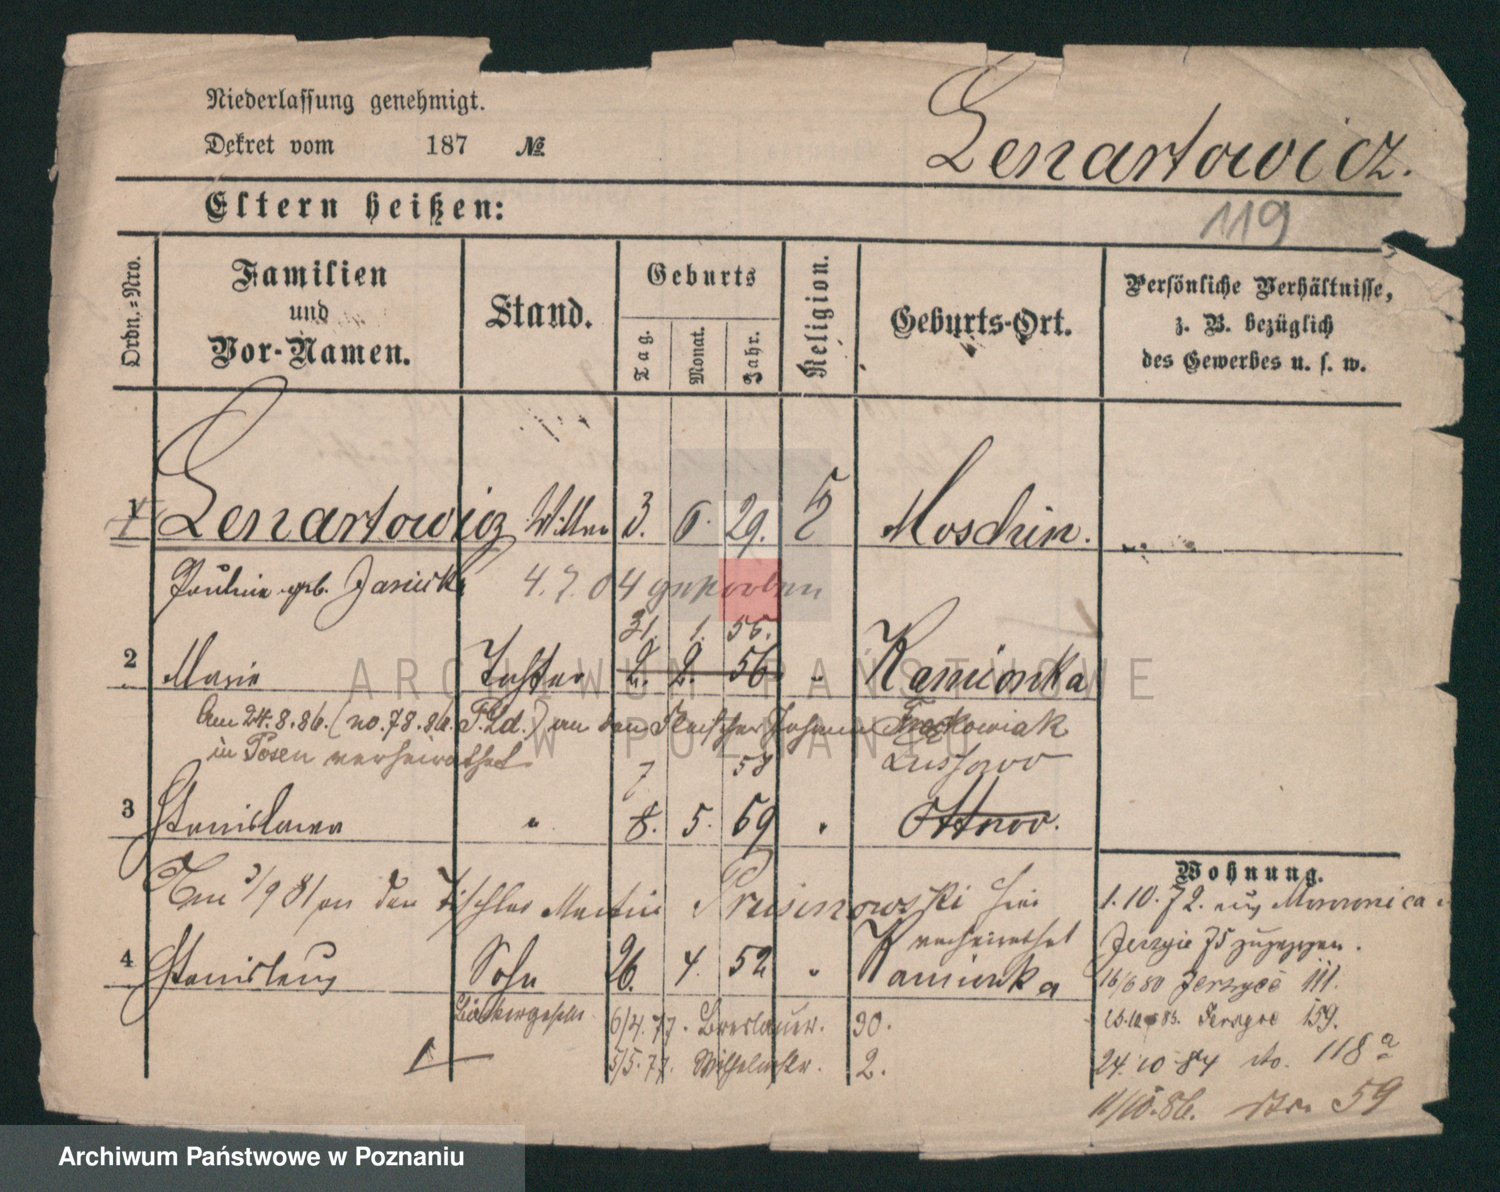 Niederlassung genehmigt.
Dekret vom 187 №
Lenartowicz.
Eltern heißen:
119
Ordn.-Nro.
Familien
und
Vor-Namen.
Stand.
Geburts
Tag.
Monat.
Jahr.
Religion.
Geburts-Ort.
Persönliche Verhältnisse,
z. B. bezüglich
des Gewerbes u. s. w.
1 Lenartowicz 3. 6. 29. Moschin.
geb. 4.7.04 gestorben
31. 1. 56.
2 Marie Tochter 2. 2. 56 " Kamionka
Am 24.8.86. (no. 78.86. P.Ld.) an den Fleischer Johann
in Posen verheirathet
7 58 Lussowo
3 Stanislawa " 8. 5. 59 " Ottowo.
Am 3/9 81 an den Tischler Martin hier
verheirathet
4 Stanislaus Sohn 26. 4. 52 " Kamionka
Bäckergeselle 6/4.77. Breslauer. 30.
5/5.77. Wilhelmstr. 2.
Wohnung.
1.10.72. aus
Jerzyce 75 zugezogen.
16/6 80 Jerzyce 111.
83. Jerzyce 159.
24.10.84 do. 118 a
11/10.86. 59
ARCHIWUM PAŃSTWOWE
W POZNANIU
Archiwum Państwowe w Poznaniu